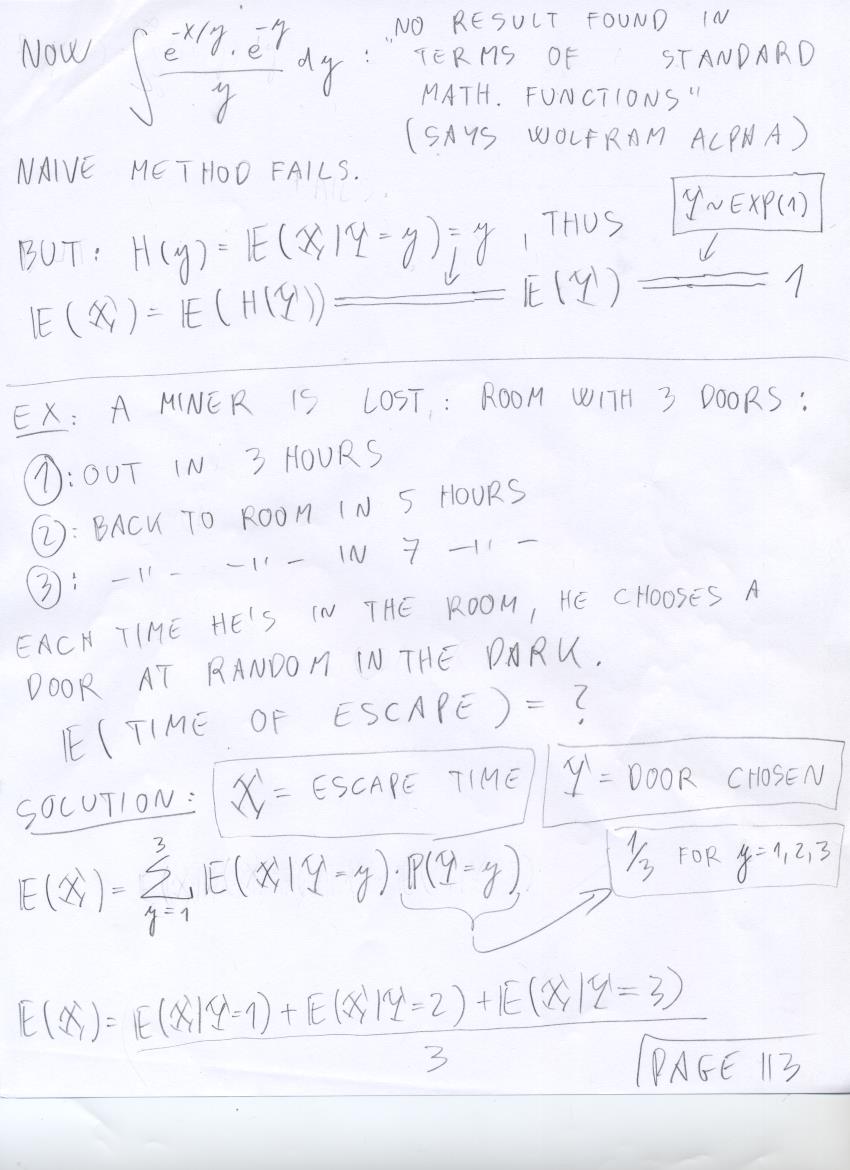 NOW ∫ e^{-x/y} · e^{-y} / y dy : "NO RESULT FOUND IN
TERMS OF STANDARD
MATH. FUNCTIONS"
(SAYS WOLFRAM ALPHA)
NAIVE METHOD FAILS.
BUT: H(y) = E(X|Y=y) = y, THUS
Y~EXP(1)
E(X) = E(H(Y)) = E(Y) = 1
EX: A MINER IS LOST: ROOM WITH 3 DOORS:
①: OUT IN 3 HOURS
②: BACK TO ROOM IN 5 HOURS
③: -"- -"- IN 7 -"-
EACH TIME HE'S IN THE ROOM, HE CHOOSES A
DOOR AT RANDOM IN THE DARK.
E(TIME OF ESCAPE) = ?
SOLUTION: X = ESCAPE TIME Y = DOOR CHOSEN
E(X) = Σ_{y=1}^{3} E(X|Y=y) · P(Y=y) 1/3 FOR y=1,2,3
E(X) = E(X|Y=1) + E(X|Y=2) + E(X|Y=3)
3
PAGE 113